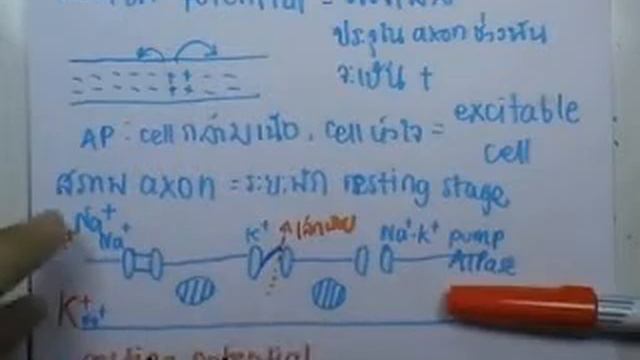 potential =
ประจุใน axon ช่วงนั้น
จะเป็น +
AP : cell กล้ามเนื้อ, cell หัวใจ = excitable
cell
สภาพ axon = ระยะพัก resting stage
Na+
Na+
K+
เล็กน้อย
Na+-K+ pump
ATPase
K+
resting potential